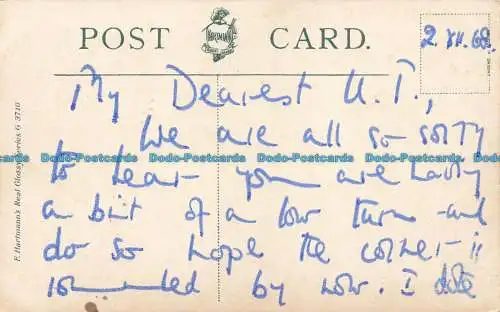 POST CARD.
HARTMANN
2. XII. 68.
F. Hartmann's Real Glossy Series G 3710
My Dearest U.T.,
We are all so sorry
to hear you are having
a bit of a low turn and
do so hope the corner is
rounded by now. I
Dodo-Postcards Dodo-Postcards Dodo-Postcards Dodo-Postcards